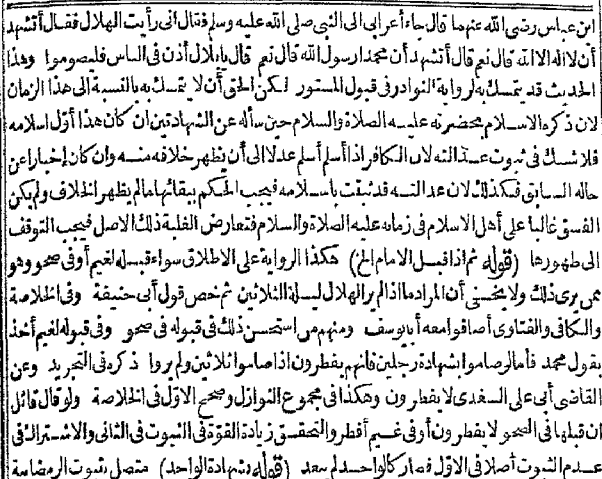 ابن عباس رضى الله عنهما قال جاء أعرابى الى النبى صلى الله عليه وسلم فقال انى رأيت الهلال فقال أتشهد
أن لا اله الا الله قال نعم قال أتشهد أن محمدا رسول الله قال نعم قال يا بلال أذن فى الناس فليصوموا وهذا
الحديث قد يتمسك به لرواية النوادر فى قبول المستور لكن الحق أن لا يتمسك به بالنسبة الى هذا الزمان
لان ذكره الاسلام بحضرته عليه الصلاة والسلام حين سأله عن الشهادتين ان كان هذا أول اسلامه
فلا شك فى ثبوت عدالته لان الكافر اذا أسلم أسلم عدلا الى أن يظهر خلافه منه وان كان إخبارا عن
حاله السابق فكذلك لان عدالته قد ثبتت باسلامه فيجب الحكم ببقائها ما لم يظهر الخلاف ولم يكن
الفسق غالبا على أهل الاسلام فى زمانه عليه الصلاة والسلام فتعارض الغلبة ذلك الاصل فيجب التوقف
الى ظهورها (قوله ثم اذا قبل الامام الخ) هكذا الرواية على الاطلاق سواء قبله لغيم أو فى صحو وهو
ممن يرى ذلك ولا يخفى أن المراد ما اذا لم ير الهلال ليلة الثلاثين ثم خص قول أبى حنيفة وفى الخلاصة
والكافى والفتاوى أضافوا معه أبا يوسف ومنهم من استحسن ذلك فى قبوله فى صحو وفى قبوله لغيم أخذ
بقول محمد فأما لو صاموا بشهادة رجلين فانهم يفطرون اذا صاموا ثلاثين ولم يروا ذكره فى التجريد وعن
القاضى أبى على السغدى لا يفطرون وهكذا فى مجموع النوازل وصحح الاول فى الخلاصة ولو قال قائل
ان قبلها فى الصحو لا يفطرون أو فى غيم أفطروا لتحقق زيادة القوة فى الثبوت فى الثانى والاشتراك فى
عدم الثبوت أصلا فى الاول فصار كالواحد لم يبعد (قوله بشهادة الواحد) متصل بثبوت الرمضانية